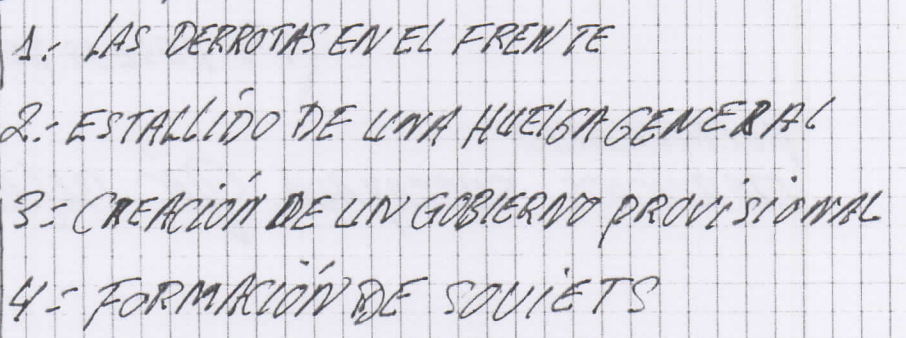 1.- LAS DERROTAS EN EL FRENTE
2.- ESTALLIDO DE UNA HUELGA GENERAL
3.- CREACIÓN DE UN GOBIERNO PROVISIONAL
4.- FORMACIÓN DE SOVIETS